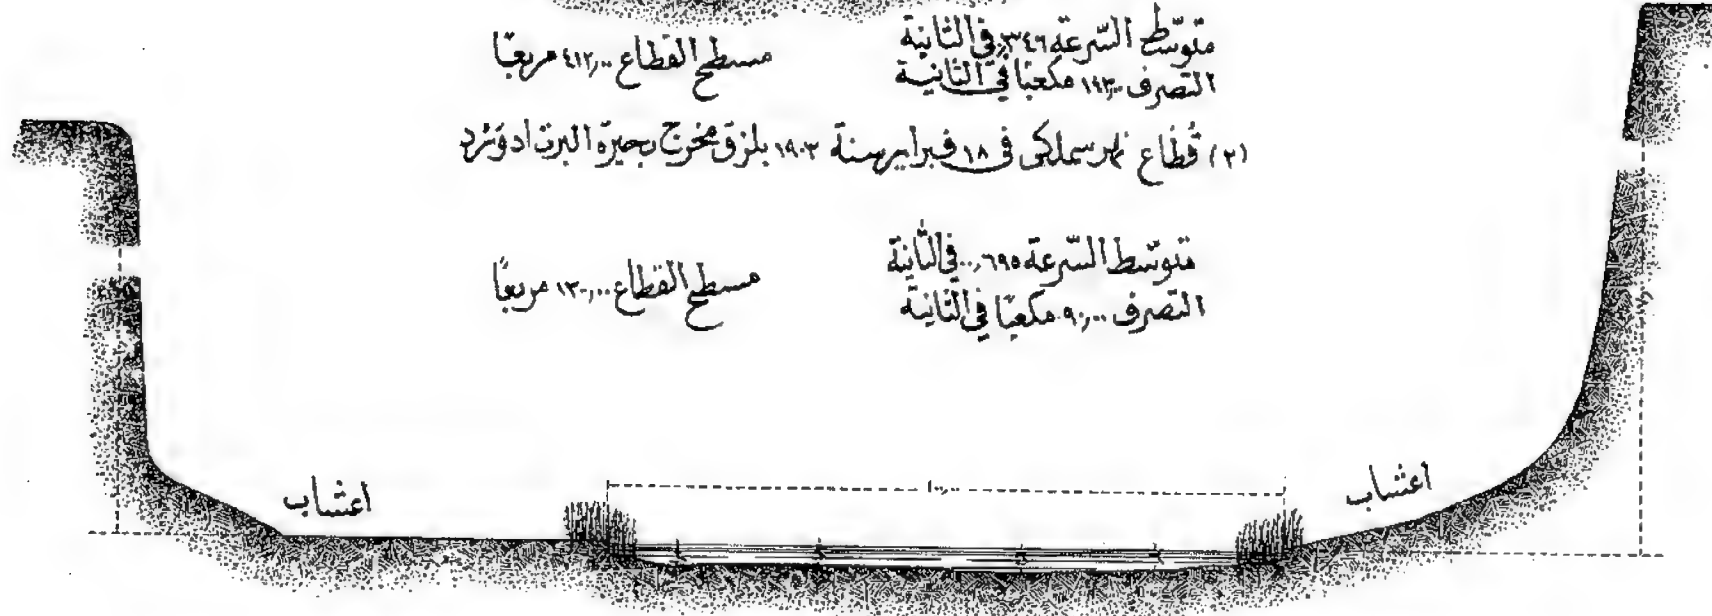 متوسّط السّرعة ٣٤٦,٠ في الثانية
التصرف ١٤٣,٠٠ مكعبًا في الثانية
مسطح القطاع ٤١٢,٠٠ مربعًا
(٢) قطاع نهر سملكى فى ١٨ فبراير سنة ١٩٠٣ بلزق مخرج بحيرة البرت ادوَرد
متوسّط السّرعة ٦٩٥,٠٠ في الثانية
التصرف ٩٠,٠٠ مكعبًا في الثانية
مسطح القطاع ١٣٠,٠٠ مربعًا
اعشاب
اعشاب